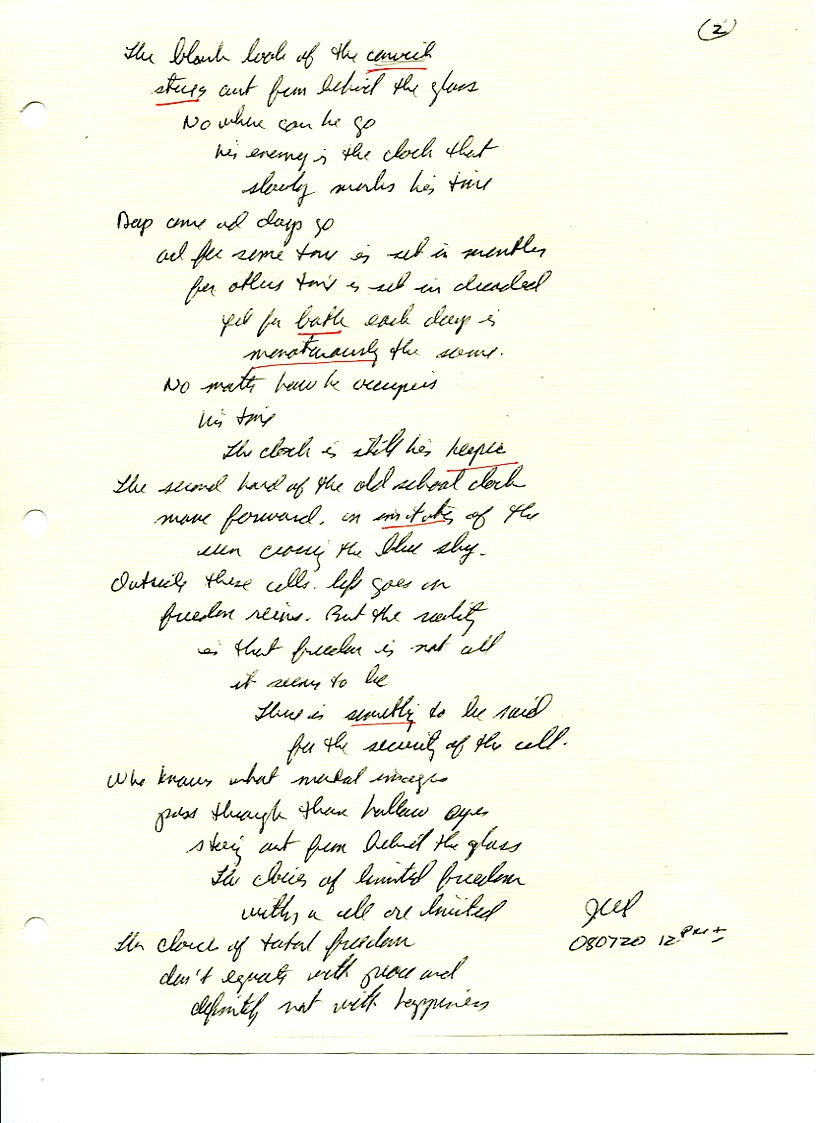 (2)
The blank look of the convict
stares out from behind the glass
No where can he go
his enemy is the clock that
slowly marks his time
Days come and days go
and for some time is set in months
for others time is set in decades
yet for both each day is
monotonously the same.
No matter how he occupies
his time
The clock is still his keeper
The second hand of the old school clock
move forward, in of the
sun crossing the blue sky.
Outside these cells life goes on
freedom reins. But the reality
is that freedom is not all
it seems to be
There is something to be said
for the security of the cell.
Who knows what mental images
pass through those hallow eyes
staring out from behind the glass
The choices of limited freedom
within a cell are limited
The choice of total freedom
don't equate with peace and
definitely not with happiness
080720 12 PM±